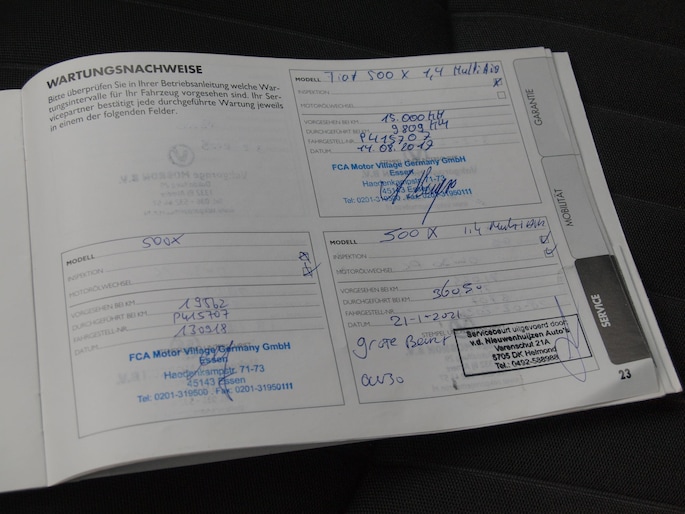 WARTUNGSNACHWEISE
Bitte überprüfen Sie in Ihrer Betriebsanleitung welche War-
tungsintervalle für Ihr Fahrzeug vorgesehen sind. Ihr Ser-
vicepartner bestätigt jede durchgeführte Wartung jeweils
in einem der folgenden Felder.
MODELL 500 X 1,4 MultiAir
INSPEKTION
MOTORÖLWECHSEL
VORGESEHEN BEI KM 15.000 KM
DURCHGEFÜHRT BEI KM 9809 KM
FAHRGESTELL-NR. P415707
DATUM 14.08.2017
FCA Motor Village Germany GmbH
Essen
Haedenkampstr. 71-73
45143 Essen
Tel: 0201-319500 . Fax: 0201-31950111
MODELL 500X
INSPEKTION
MOTORÖLWECHSEL
VORGESEHEN BEI KM
DURCHGEFÜHRT BEI KM 19562
FAHRGESTELL-NR. P415707
DATUM 130918
FCA Motor Village Germany GmbH
Essen
Haedenkampstr. 71-73
45143 Essen
Tel: 0201-319500 . Fax: 0201-31950111
MODELL 500 X 1,4 MultiAir
INSPEKTION
MOTORÖLWECHSEL
VORGESEHEN BEI KM
DURCHGEFÜHRT BEI KM 36050
FAHRGESTELL-NR.
DATUM 21-1-2021
grote Beurt
ow30
Servicebeurt uitgevoerd door:
v.d. Nieuwenhuijzen Auto's
Varenschut 21A
5705 DK Helmond
Tel.: 0492-588988
GARANTIE
MOBILITÄT
SERVICE
23